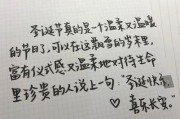 圣诞节真的是一个温柔又温暖
的节日了,可以在这飘雪的岁末里,
富有仪式感又温柔地对待生命
里珍贵的人说上一句:“圣诞快乐,
♡ 喜乐长安.”